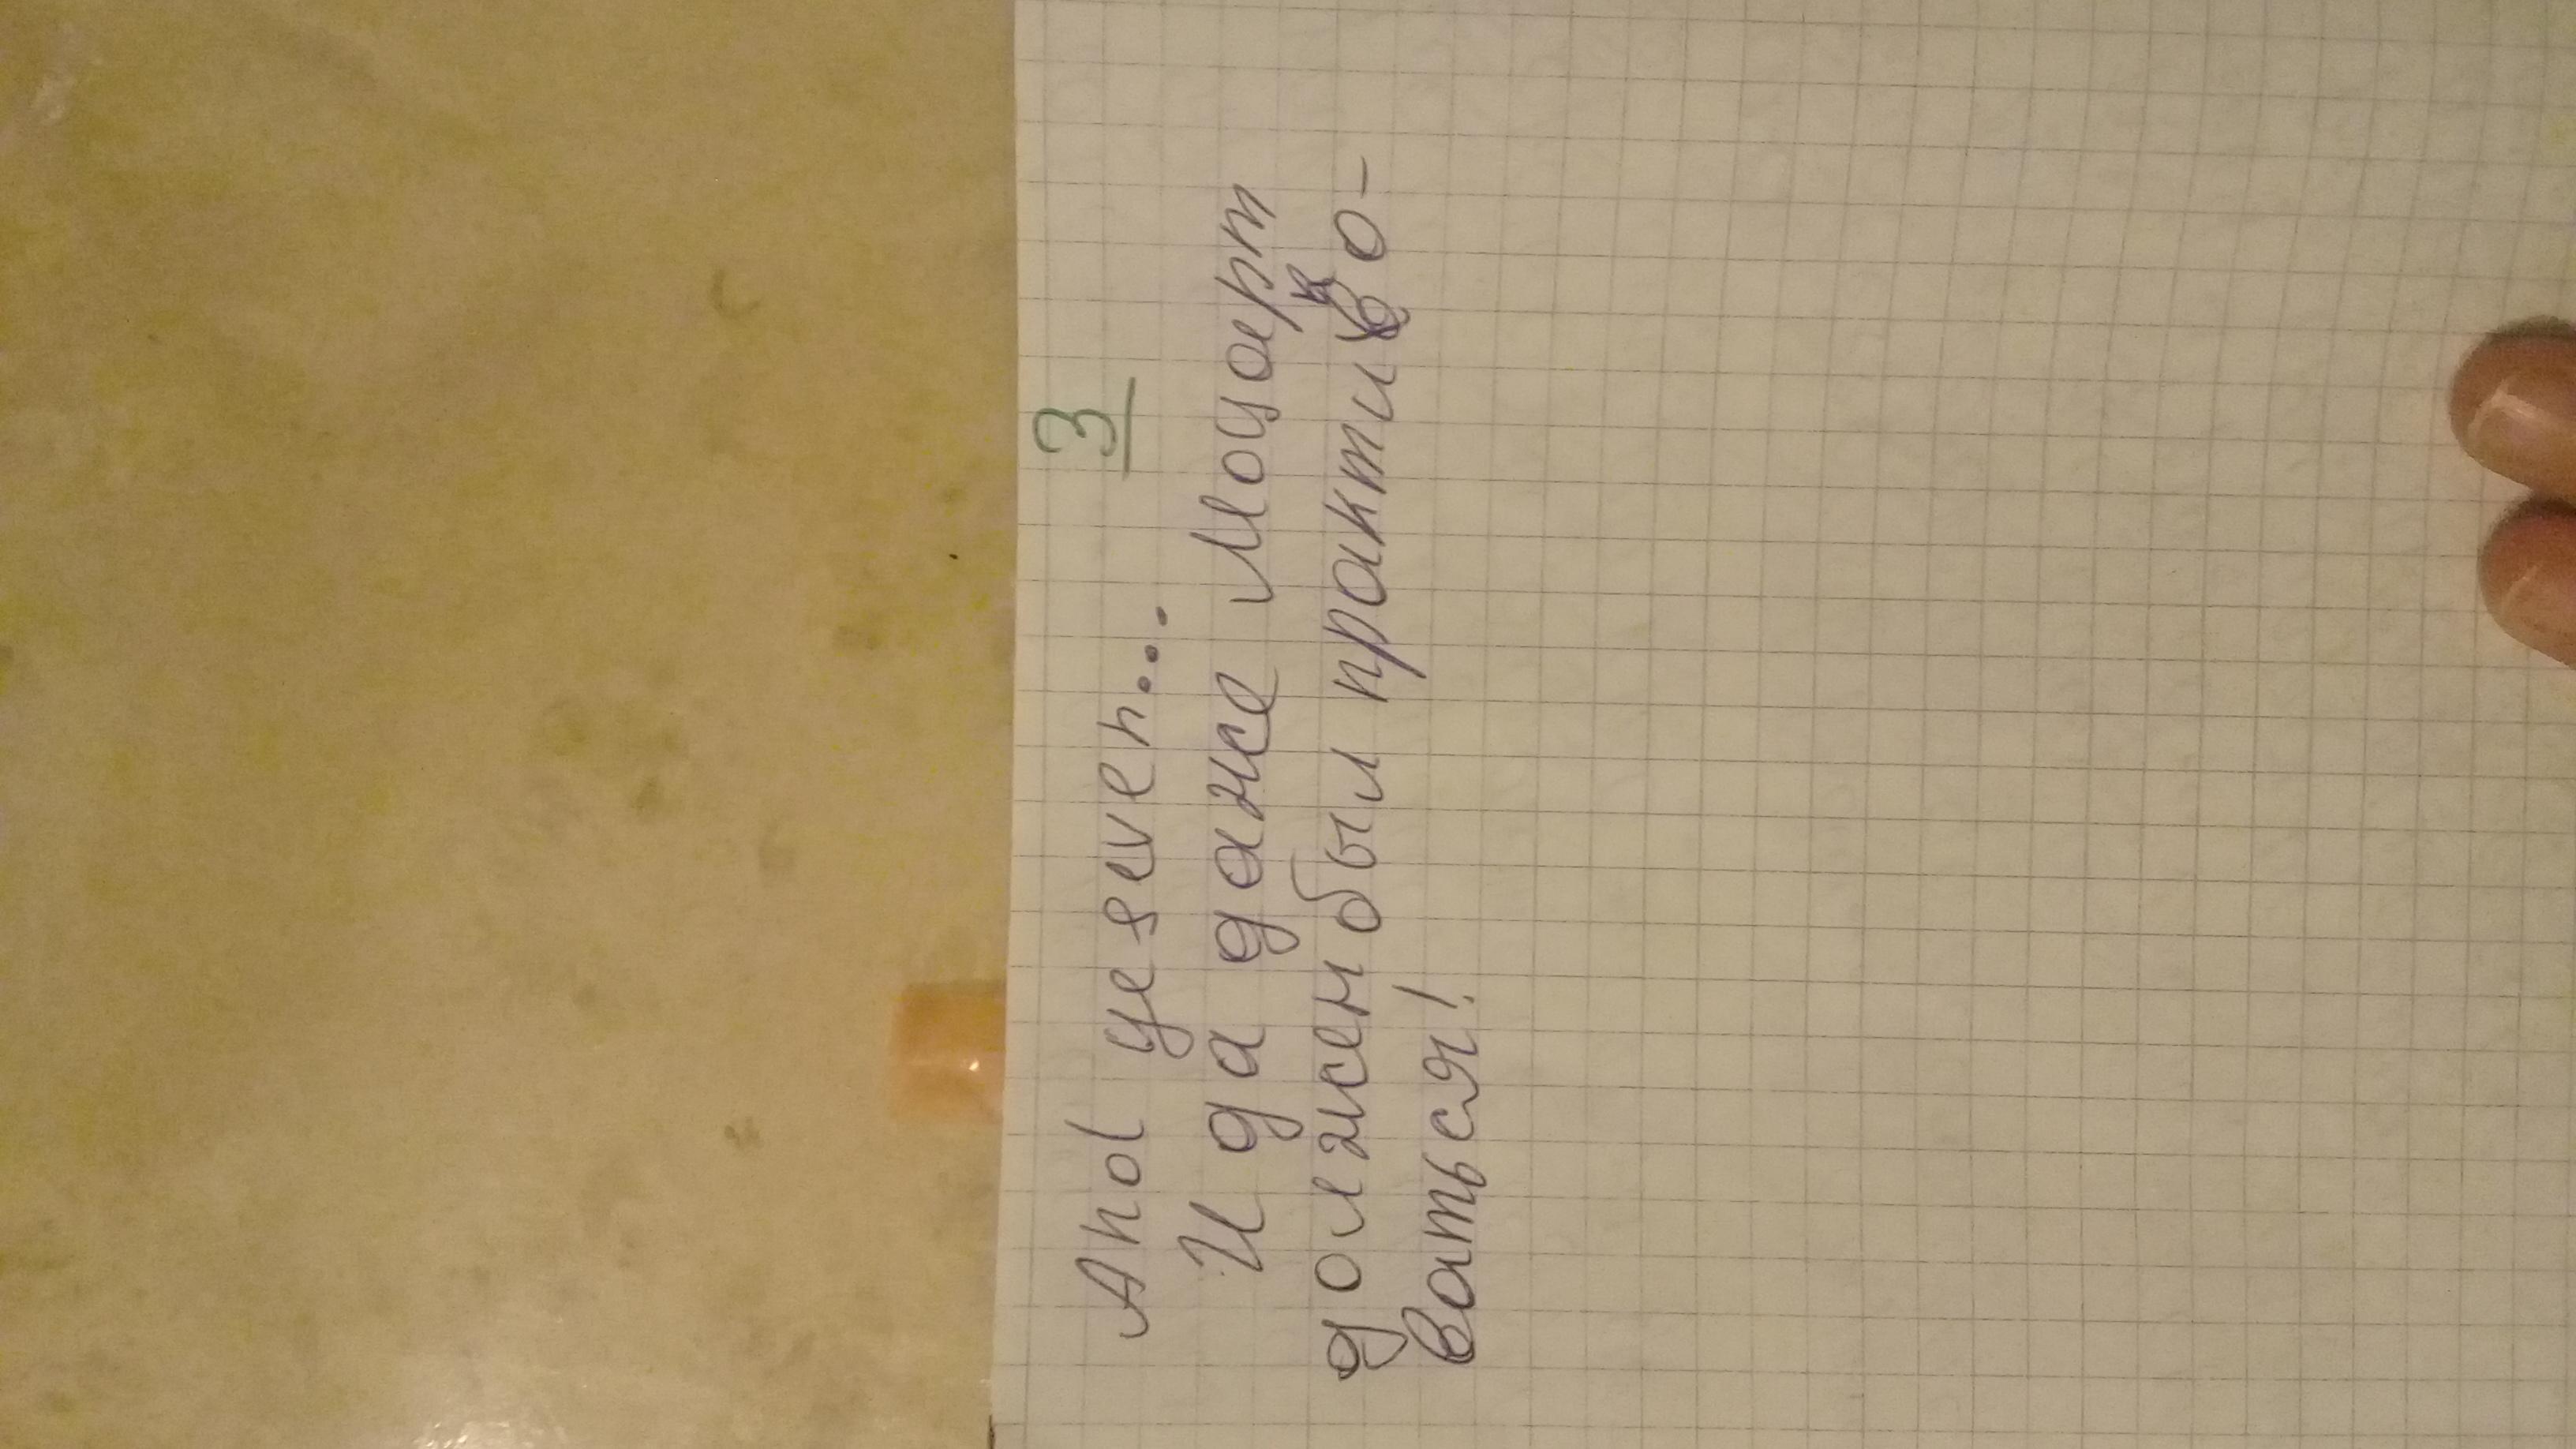 3
Ahol yeseven...
И да даже Моцарт
должен был практико-
ваться!